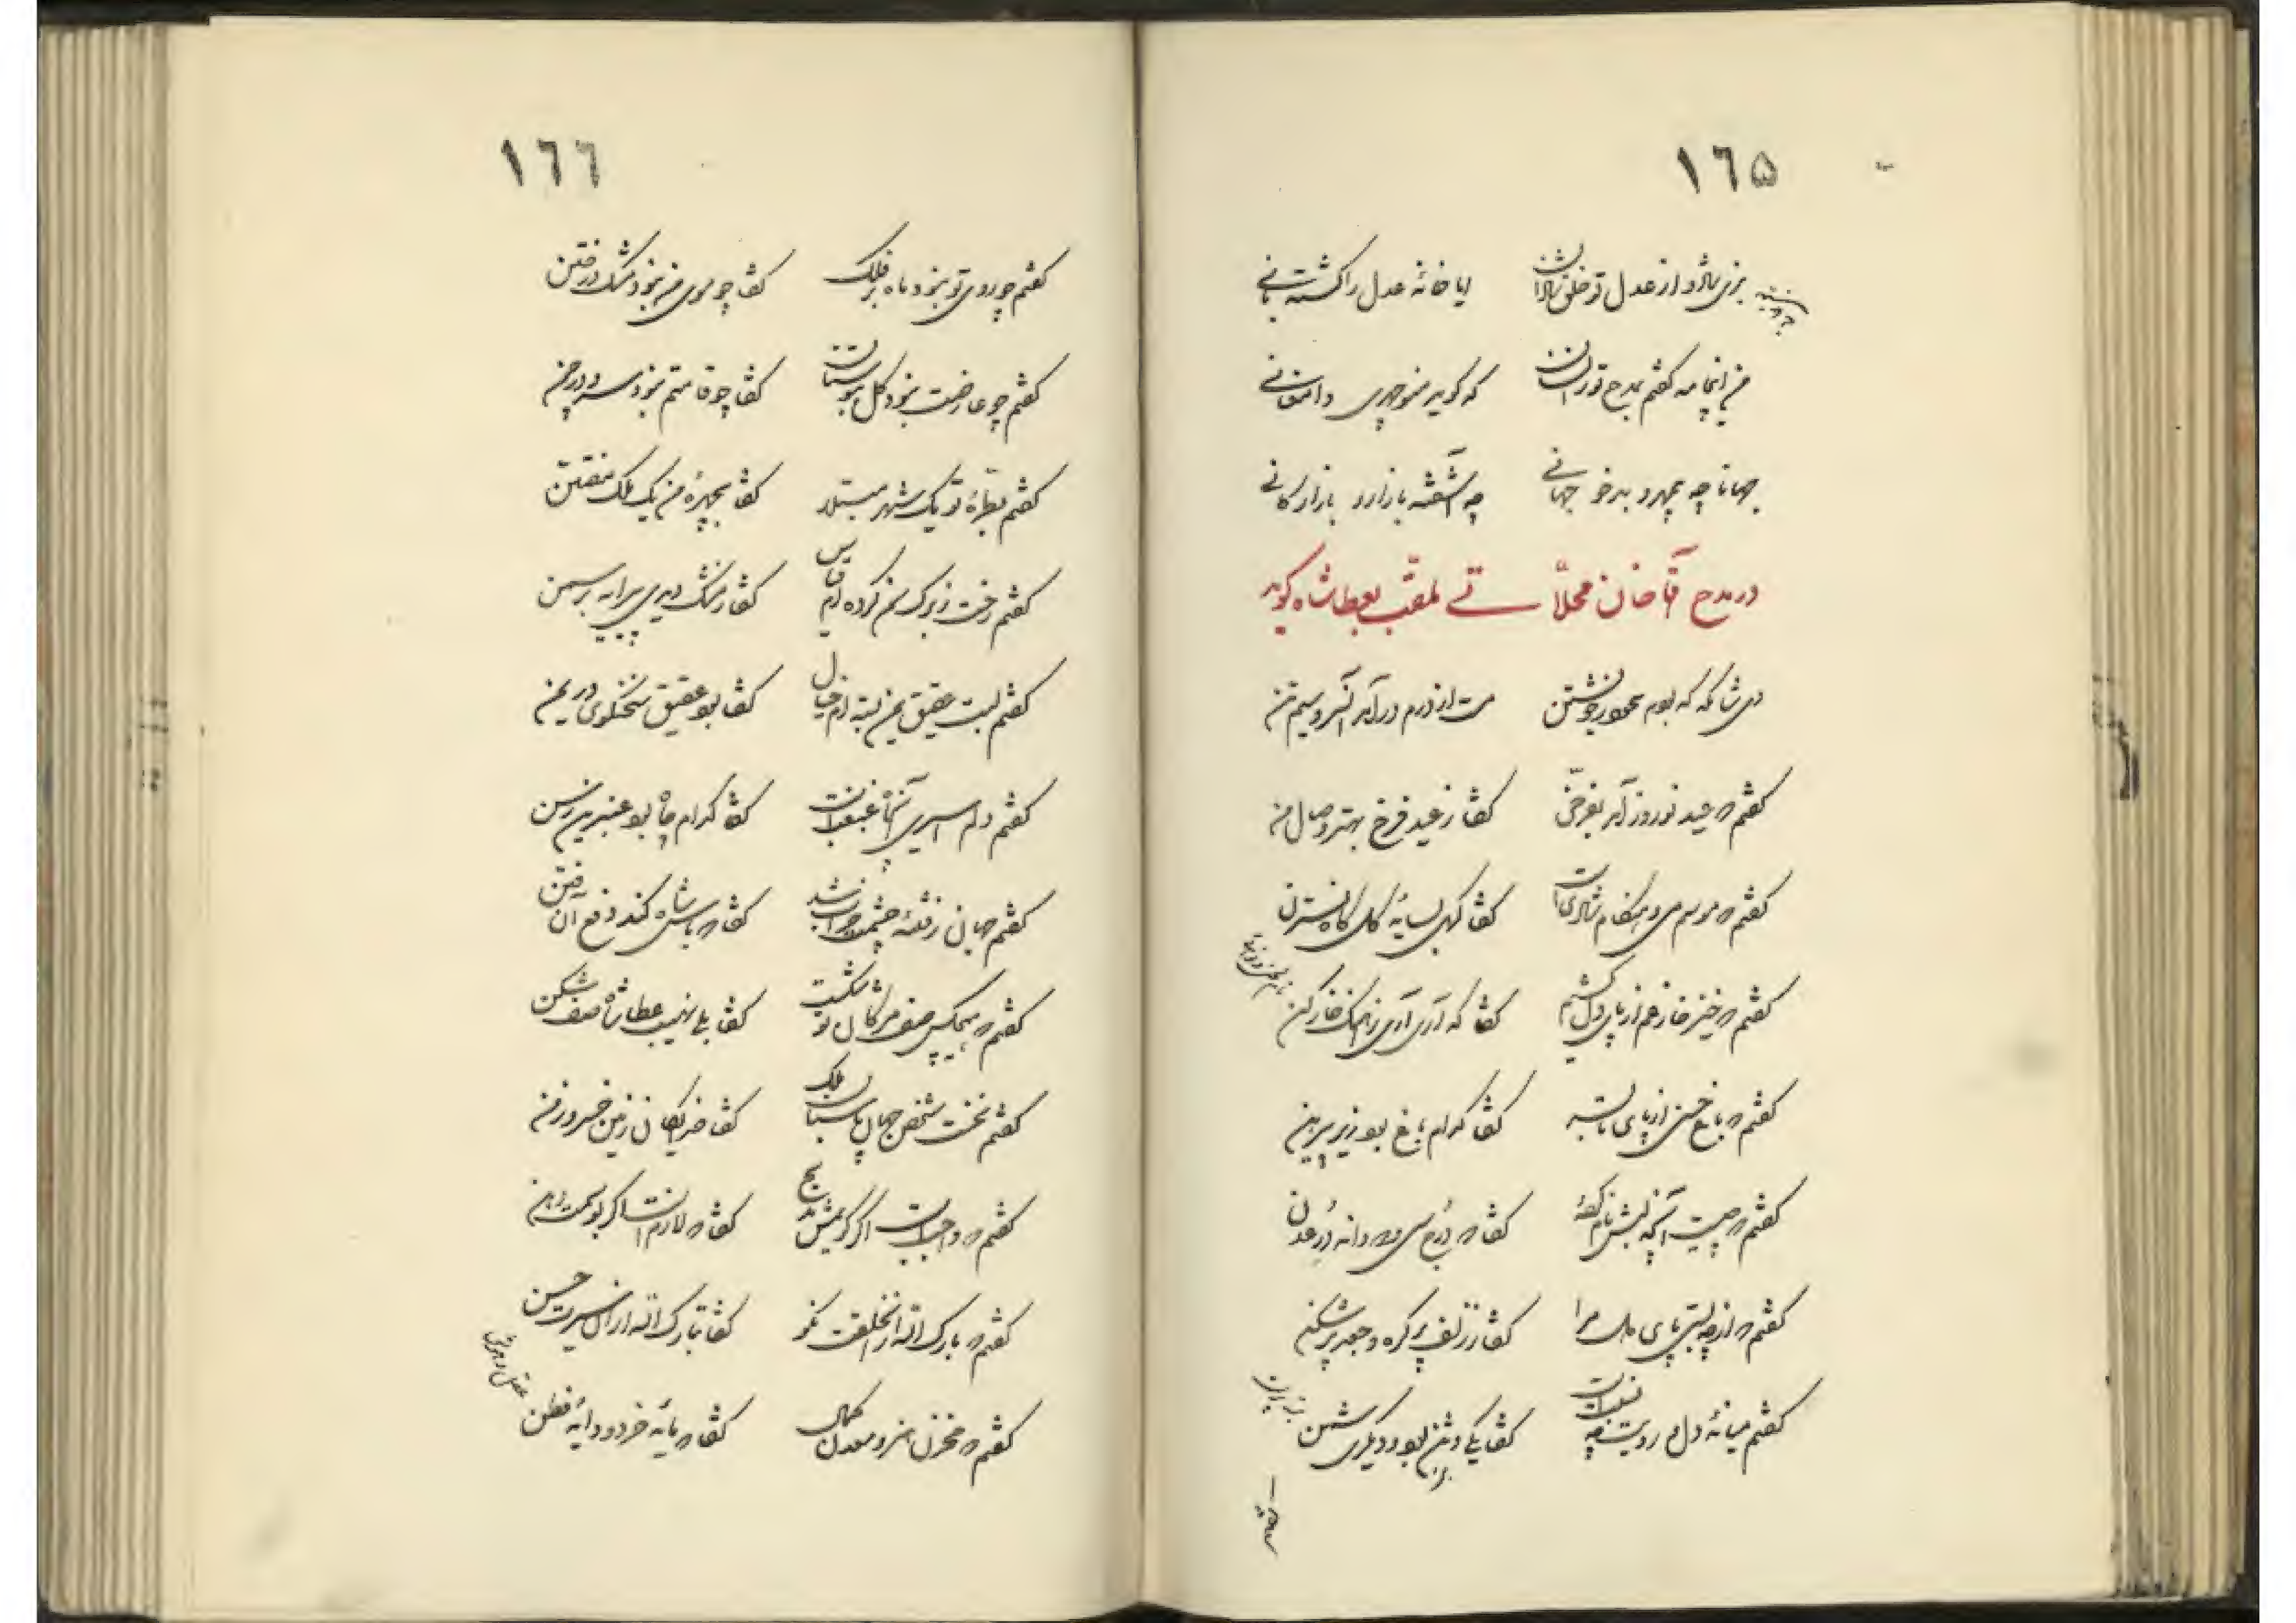 ١٦۵
بزی شاد و از عدل تو خلق شادان ایا خانهٔ عدل را گشته بانی
من این چامه گفتم بمدح تو زانسان که گوید منوچهری دامغانی
جهانا چه بدمهر و بدخو جهانی چه آشفته بازار و بازارگانی
در مدح آقاخان محلّاتی ملقّب بعطاشاه گوید
دی شامگه که بودم در خویشتن مست از درم درآمد آن سرو سیم تن
گفتم که عید نوروز آمد بفرّخی گفتا ز عید فرخ بهتر وصال من
گفتم که موسم می و هنگام شادی است گفتا بسایهٔ گل نسترن
گفتم که خیز خار غم از پای دل کشیم گفتا که آری آری خارکن
گفتم که باغ حسن از پای گفتا کدام باغ بود زیر پیرهن
گفتم که چیست آنکه لبش نام گفتا که دُرج سی و دو دانه دُرّ عدن
گفتم که از چه بستی پای دل مرا گفتا ز زلف پر گره و جعد پر شکن
گفتم میانهٔ دل و رویت چه نسبت است گفتا یکی وثن بود و دیگری شمن
گفتم
١٦٦
گفتم چو روی تو نبود ماه بر فلک گفتا چو موی من نبود مشک در ختن
گفتم چو عارضت نبود گل ببوستان گفتا چو قامتم نبود سرو در چمن
گفتم بطرّهٔ تو یک شهر مبتلا گفتا بچهرهٔ من یک ملک مفتتن
گفتم رخت ز برگ سمن کرده‌ام قیاس گفتا ز مشک دیدی پیرایه بر سمن
گفتم لبت عقیق یمن بسته‌ام خیال گفتا بود عقیق سخنگوی در یمن
گفتم دلم اسیر آن چاه غبغب است گفتا کدام چاه بود عنبرین رسن
گفتم جهان ز فتنهٔ چشمت خراب شد گفتا که باش شاه کند دفع آن فتن
گفتم که هیچکس صف مژگان تو شکست گفتا بلی نهیب عطاشاه صف شکن
گفتم نخست شخص جهان پاسبان ملک گفتا خدایگان زمین خسرو زمن
گفتم که واجب است اگر گویمش مدیح گفتا که لازم است اگر بوسمت دهن
گفتم که بارک الله از آن خلقت نکو گفتا تبارک الله از آن سیرت حسن
گفتم که مخزن هنر و معدن کمال گفتا که مایهٔ خرد و دایهٔ فطن